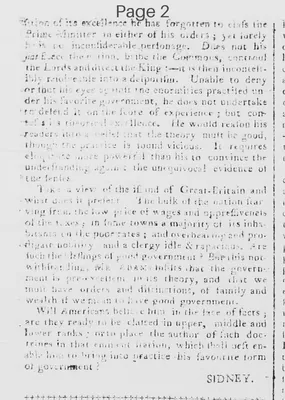 Page 2
of its excellence he has forgotten to class the
Prime Minister in either of his orders; yet surely
he is no inconsiderable personage. Does not his
the Commons, controul
the Lords and direct the King?—is then
into a despotism. Unable to deny
or shut his eyes against the enormities practised un-
der his favorite government, he does not undertake
to defend it on the score of experience; but
theoretical excellence. He would reason his
readers into a belief that the theory must be good,
though the practice is found vicious. It requires
eloquence more powerful than his to convince the
understanding against the unequivocal evidence of
the senses.
Take a view of the island of Great-Britain and
what does it present. The bulk of the nation star-
ving from the low price of wages and oppressiveness
of the taxes; in some towns a majority of its inhab-
itants on the poor rates; and overbearing and pro-
digate nobility and a clergy idle & rapacious. Are
such the blessings of good government? But this not-
withstanding, Mr. Adams insists that the govern-
ment is in its theory, and that we
must have orders and distinctions, of family and
wealth if we mean to have good government.
Will Americans believe him in the face of facts;
are they ready to be classed in upper, middle and
lower ranks; or to place the author of such doc-
trines in that eminent station, which shall best en-
able him to bring into practice his favourite form
of government?
SIDNEY.